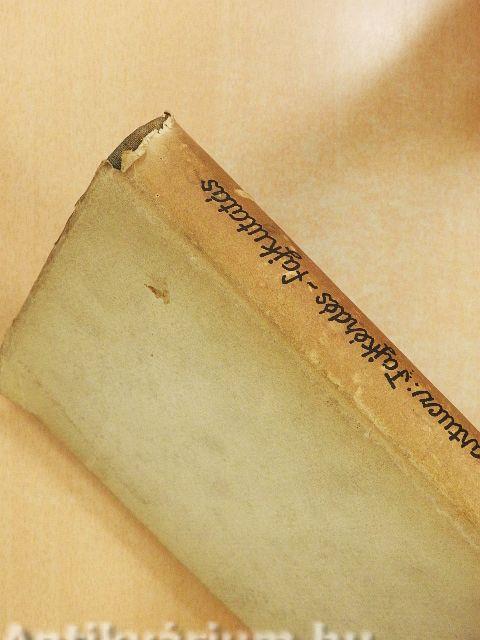 artucz: Fajkérdés - fajkutatás
Antikvárium.hu